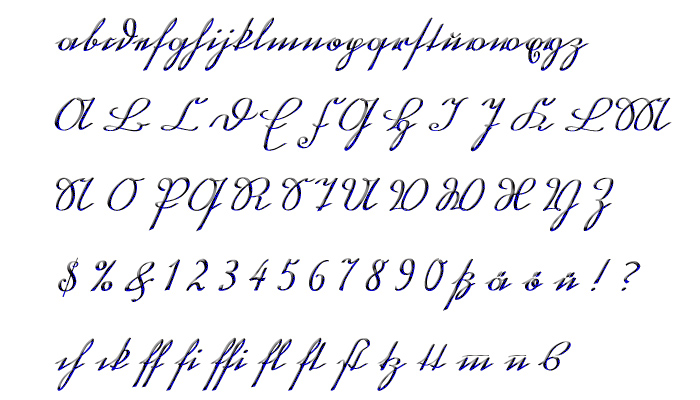 abcdefghijklmnopqrstuvwxyz
A B C D E F G H I J K L M
N O P Q R S T U V W X Y Z
$ % & 1 2 3 4 5 6 7 8 9 0 ß ä ö ü ! ?
ch ck ff fi ffi fl ft ſt tz tt m̄ n̄ s